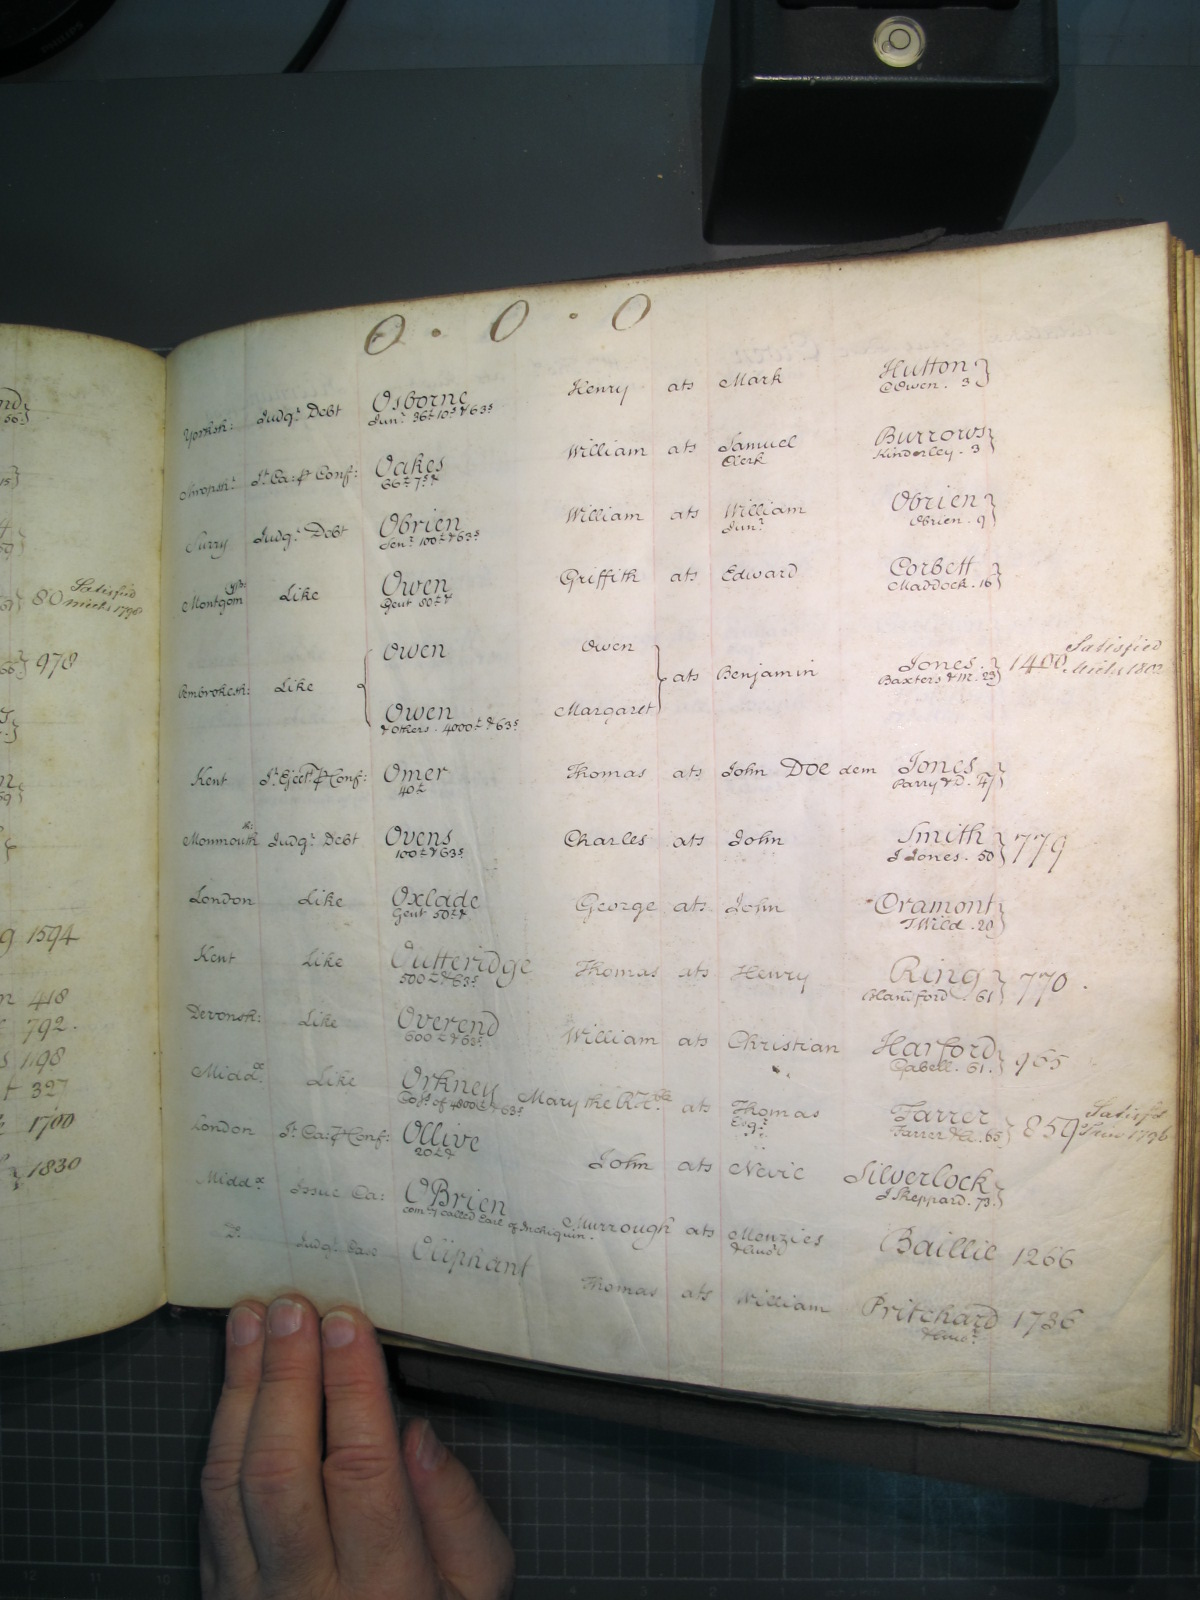 O · O · O
Yorksh: Judgt. Debt Osborne Henry ats Mark Hutton
Junr. 36£ 10s & 63s C Owen . 3
Shropsh: Jt. Ca: & Conf: Oakes William ats Samuel Burrows
66£ 7s & Clerk Kinderley . 3
Surry Judgt. Debt Obrien William ats William Obrien
Senr. 100£ & 63s Junr. Obrien . 9
Montgomsh: Like Owen Griffith ats Edward Corbett
Gent 80£ & Maddock . 16
Owen Owen
Pembrokesh: Like ats Benjamin Jones 1400 Satisfied
Baxters & M. 23 Michs 1802
Owen Margaret
& others . 4000£ & 63s
Kent Jt. Eject. & Conf: Omer Thomas ats John Doe dem Jones
40£ Parry & D. 47
Monmouthsh: Judgt. Debt Ovens Charles ats John Smith 779
100£ & 63s J Jones . 50
London Like Oxlade George ats John Oramont
Gent 50£ & T Wild . 20
Kent Like Outteridge Thomas ats Henry Ring 770 .
500£ & 63s Blandford . 61
Devonsh: Like Overend William ats Christian Harford 965
600£ & 63s Cabell . 61 .
Middx. Like Orkney Mary the Rt. Hble ats Thomas Farrer 859 Satisfd
Cos. of 4800£ & 63s Esqr. Farrer & Co. 65 1796
London Jt. Ca: & Conf: Ollive John ats Nevie Silverlock
20£ & J Sheppard . 73
Middx. Issue Ca: O'Brien Murrough ats Menzies Baillie 1266
comy. called Earl of Inchiquin . & Anor
Do. Judgt. Case Oliphant Thomas ats William Pritchard 1736
& Anor.
80 Satisfied
Michs 1796
978
1594
418
792 .
1198
327
1700
1830